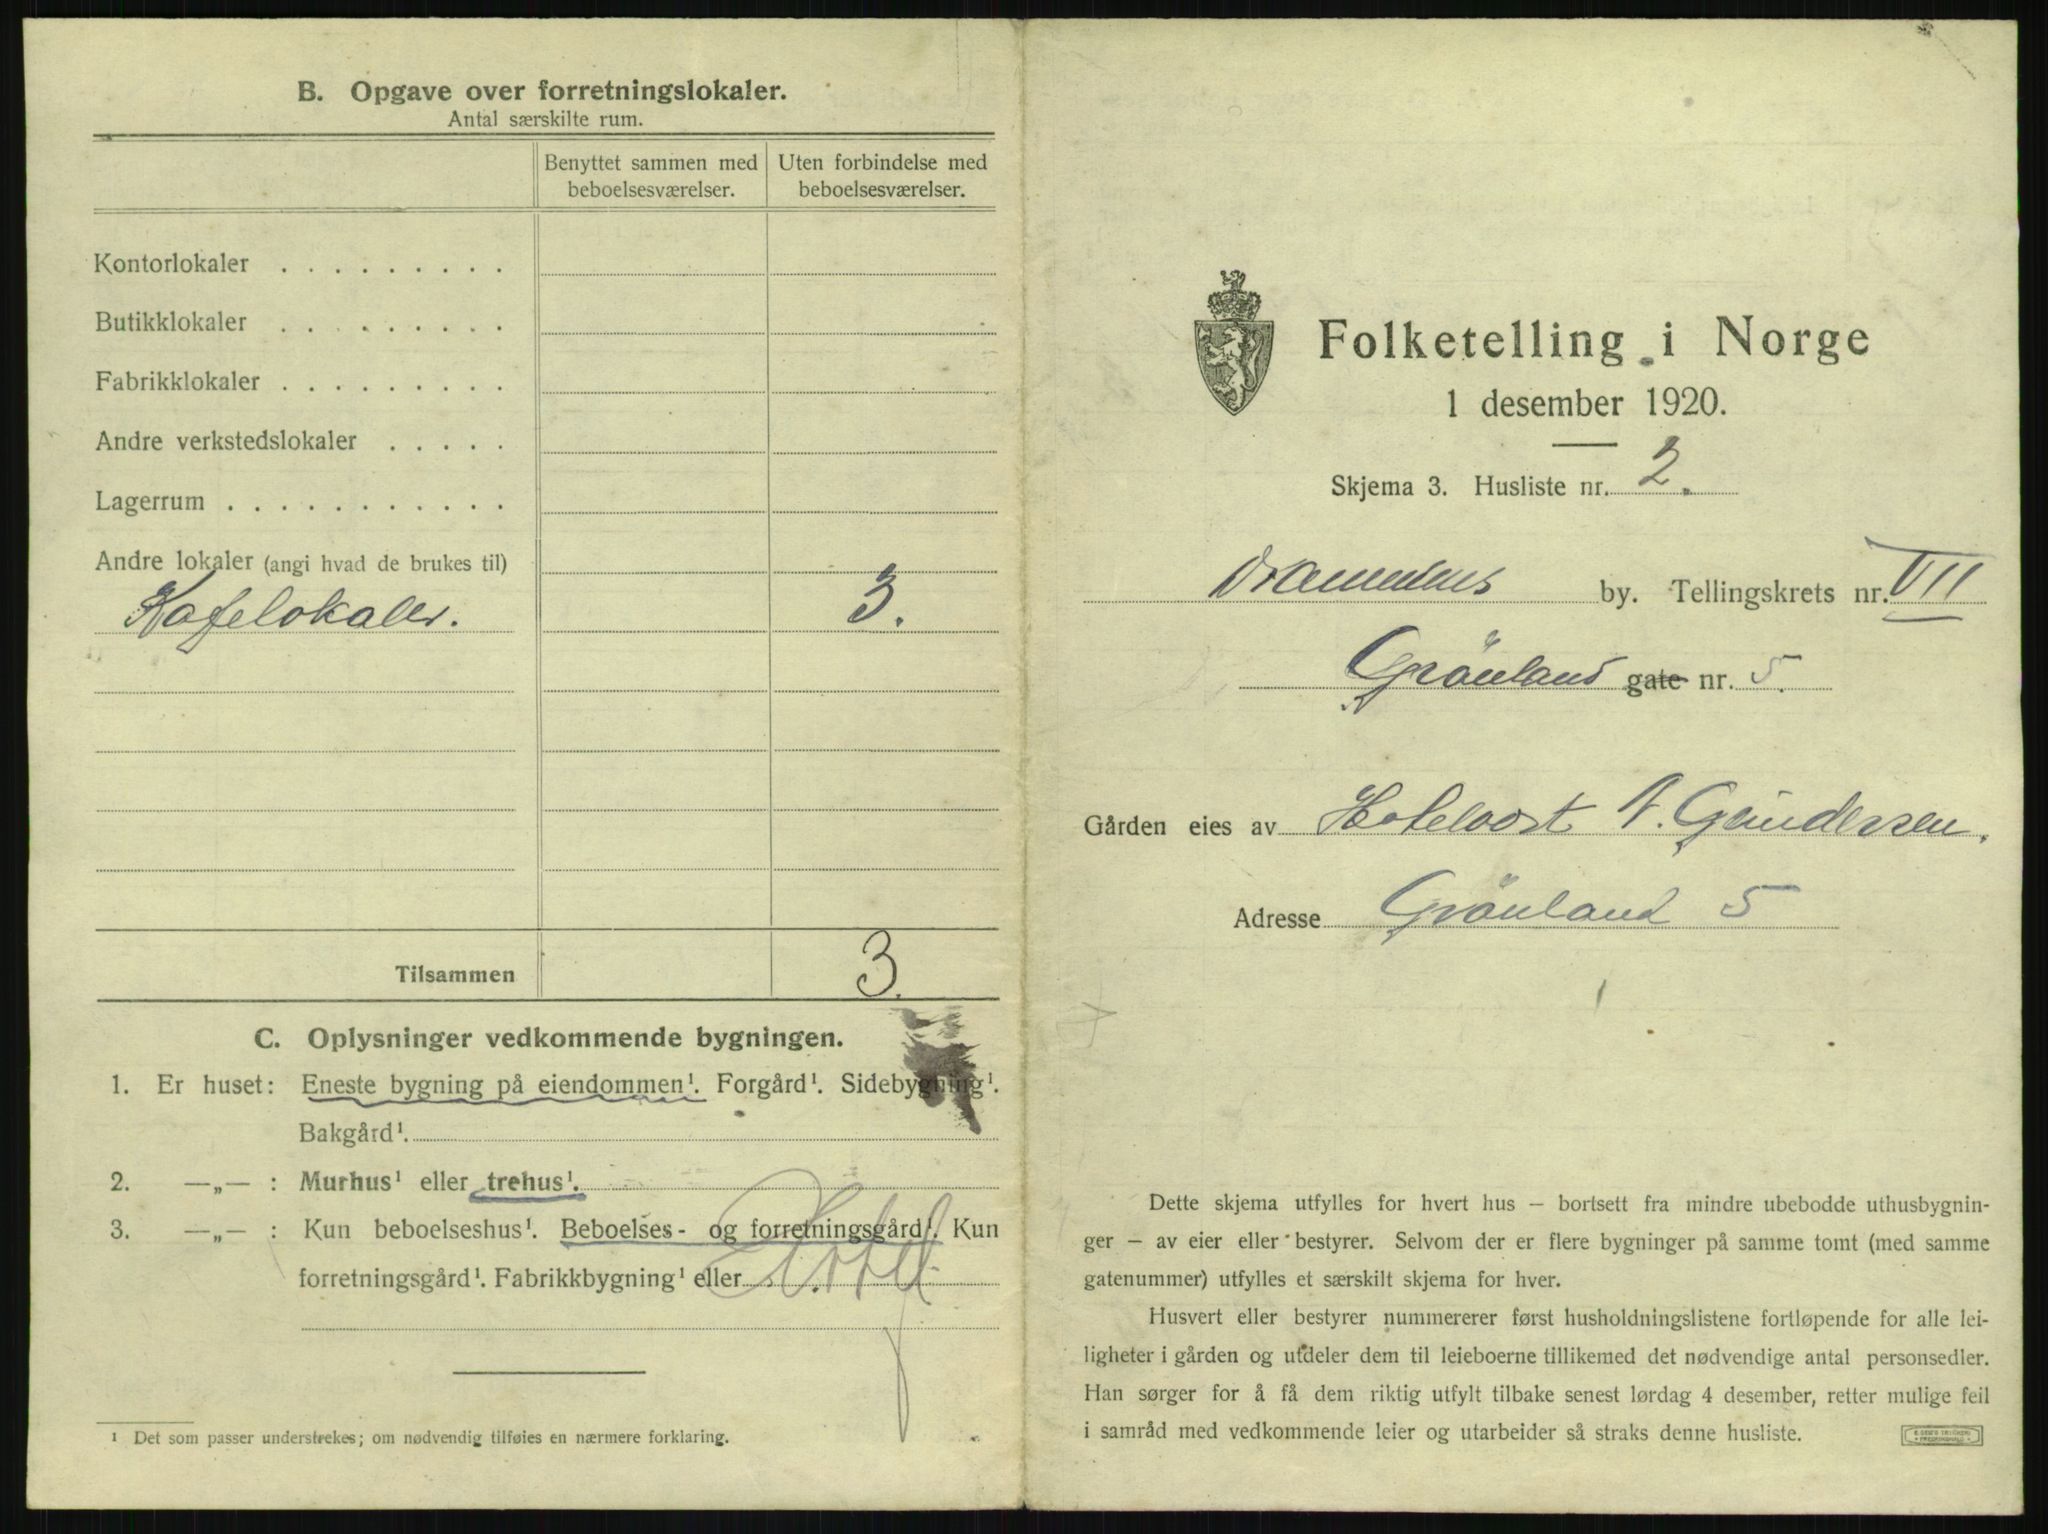 B. Opgave over forretningslokaler.
Antal særskilte rum.
Benyttet sammen med beboelsesværelser.
Uten forbindelse med beboelsesværelser.
Kontorlokaler . . . . . . . . .
Butikklokaler . . . . . . . . .
Fabrikklokaler . . . . . . . . .
Andre verkstedslokaler . . . . .
Lagerrum . . . . . . . . . . .
Andre lokaler (angi hvad de brukes til)
Kafelokaler. 3.
Tilsammen 3.
C. Oplysninger vedkommende bygningen.
1. Er huset: Eneste bygning på eiendommen¹. Forgård¹. Sidebygning¹.
Bakgård¹.
2. —„— : Murhus¹ eller trehus¹.
3. —„— : Kun beboelseshus¹. Beboelses- og forretningsgård¹. Kun
forretningsgård¹. Fabrikkbygning¹ eller Hotel.
¹ Det som passer understrekes; om nødvendig tilføies en nærmere forklaring.
Folketelling i Norge
1 desember 1920.
Skjema 3. Husliste nr. 2.
Drammens by. Tellingskrets nr. VII
Grönland gate nr. 5.
Gården eies av Hotelvært A. Gundersen.
Adresse Grönland 5
Dette skjema utfylles for hvert hus – bortsett fra mindre ubebodde uthusbygnin-
ger – av eier eller bestyrer. Selvom der er flere bygninger på samme tomt (med samme
gatenummer) utfylles et særskilt skjema for hver.
Husvert eller bestyrer nummererer først husholdningslistene fortløpende for alle lei-
ligheter i gården og utdeler dem til leieboerne tillikemed det nødvendige antal personsedler.
Han sørger for å få dem riktig utfylt tilbake senest lørdag 4 desember, retter mulige feil
i samråd med vedkommende leier og utarbeider så straks denne husliste.